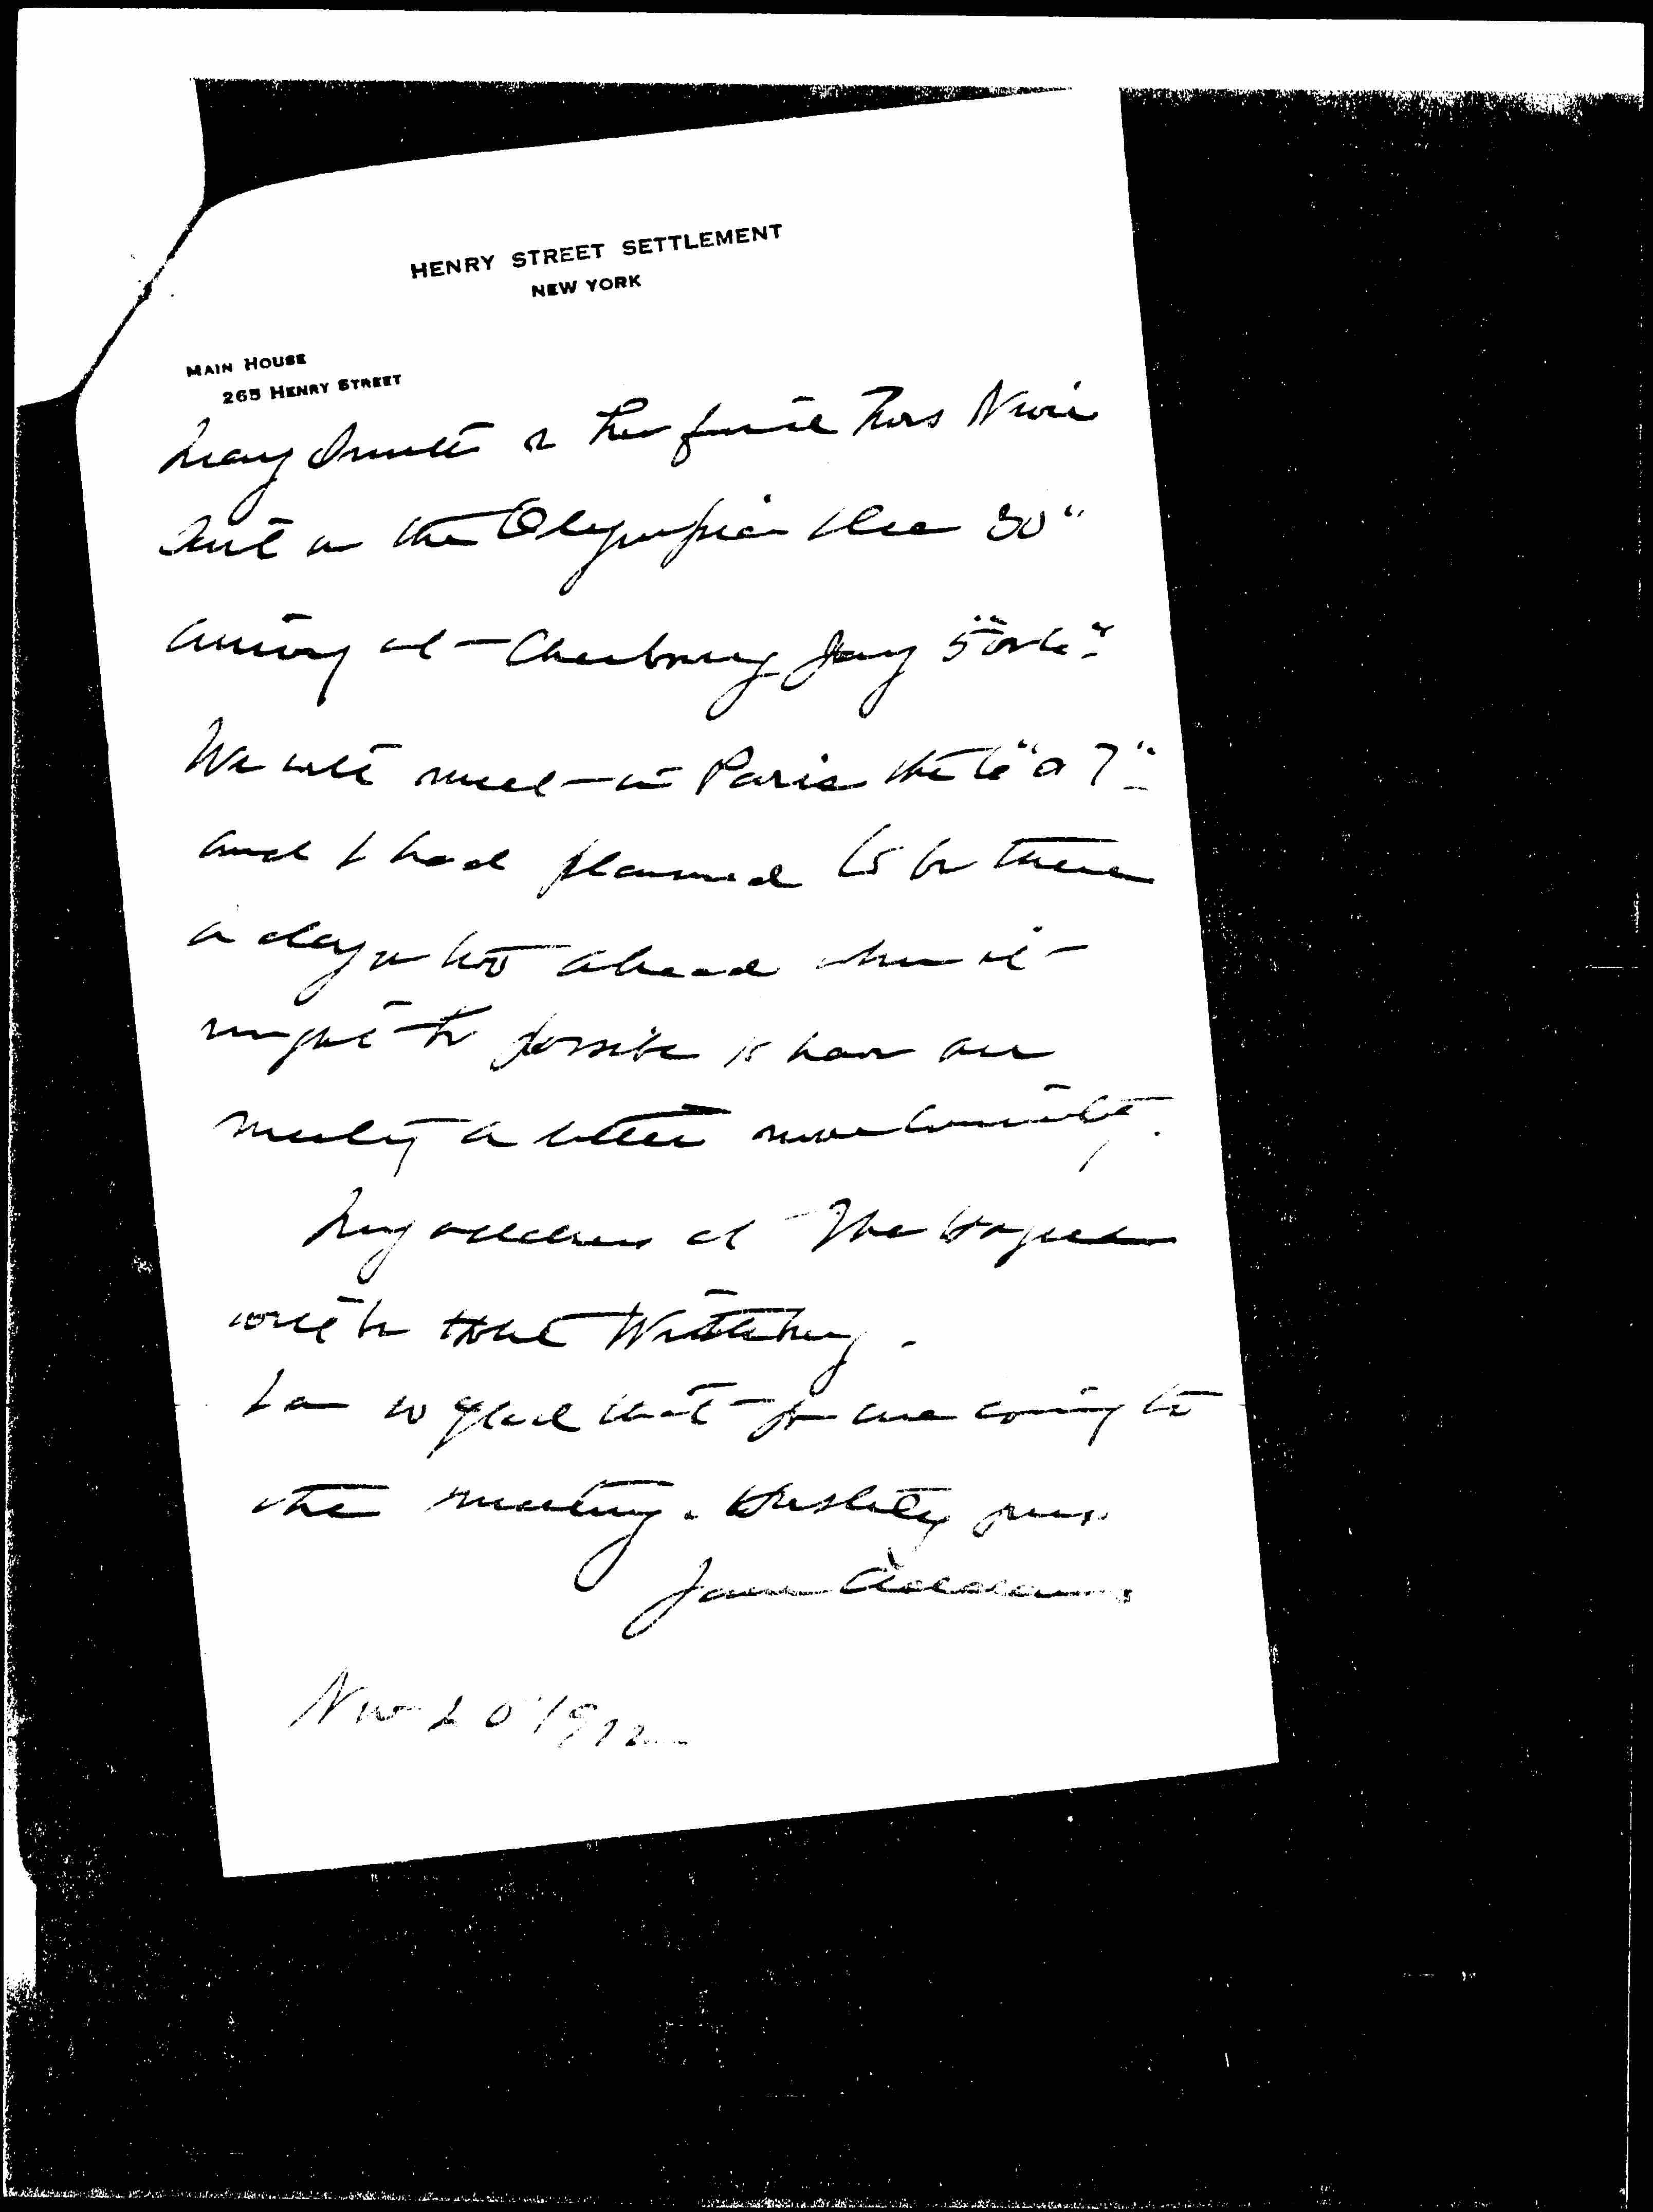 HENRY STREET SETTLEMENT
NEW YORK
MAIN HOUSE
265 HENRY STREET
Mary Smith & her friend
on the Olympic Dec 30"
arriving at Cherbourg Jany 5" or 6"
We will meet in Paris the 6" or 7"
and I had planned to be there
a day or two ahead when it
might be possible to have our
meeting a little more
My address at The Hague
will be Hotel Wittebrug.
I am so glad that you are coming to
the meeting. Hastily yours
Jane Addams
Nov 20" 1922